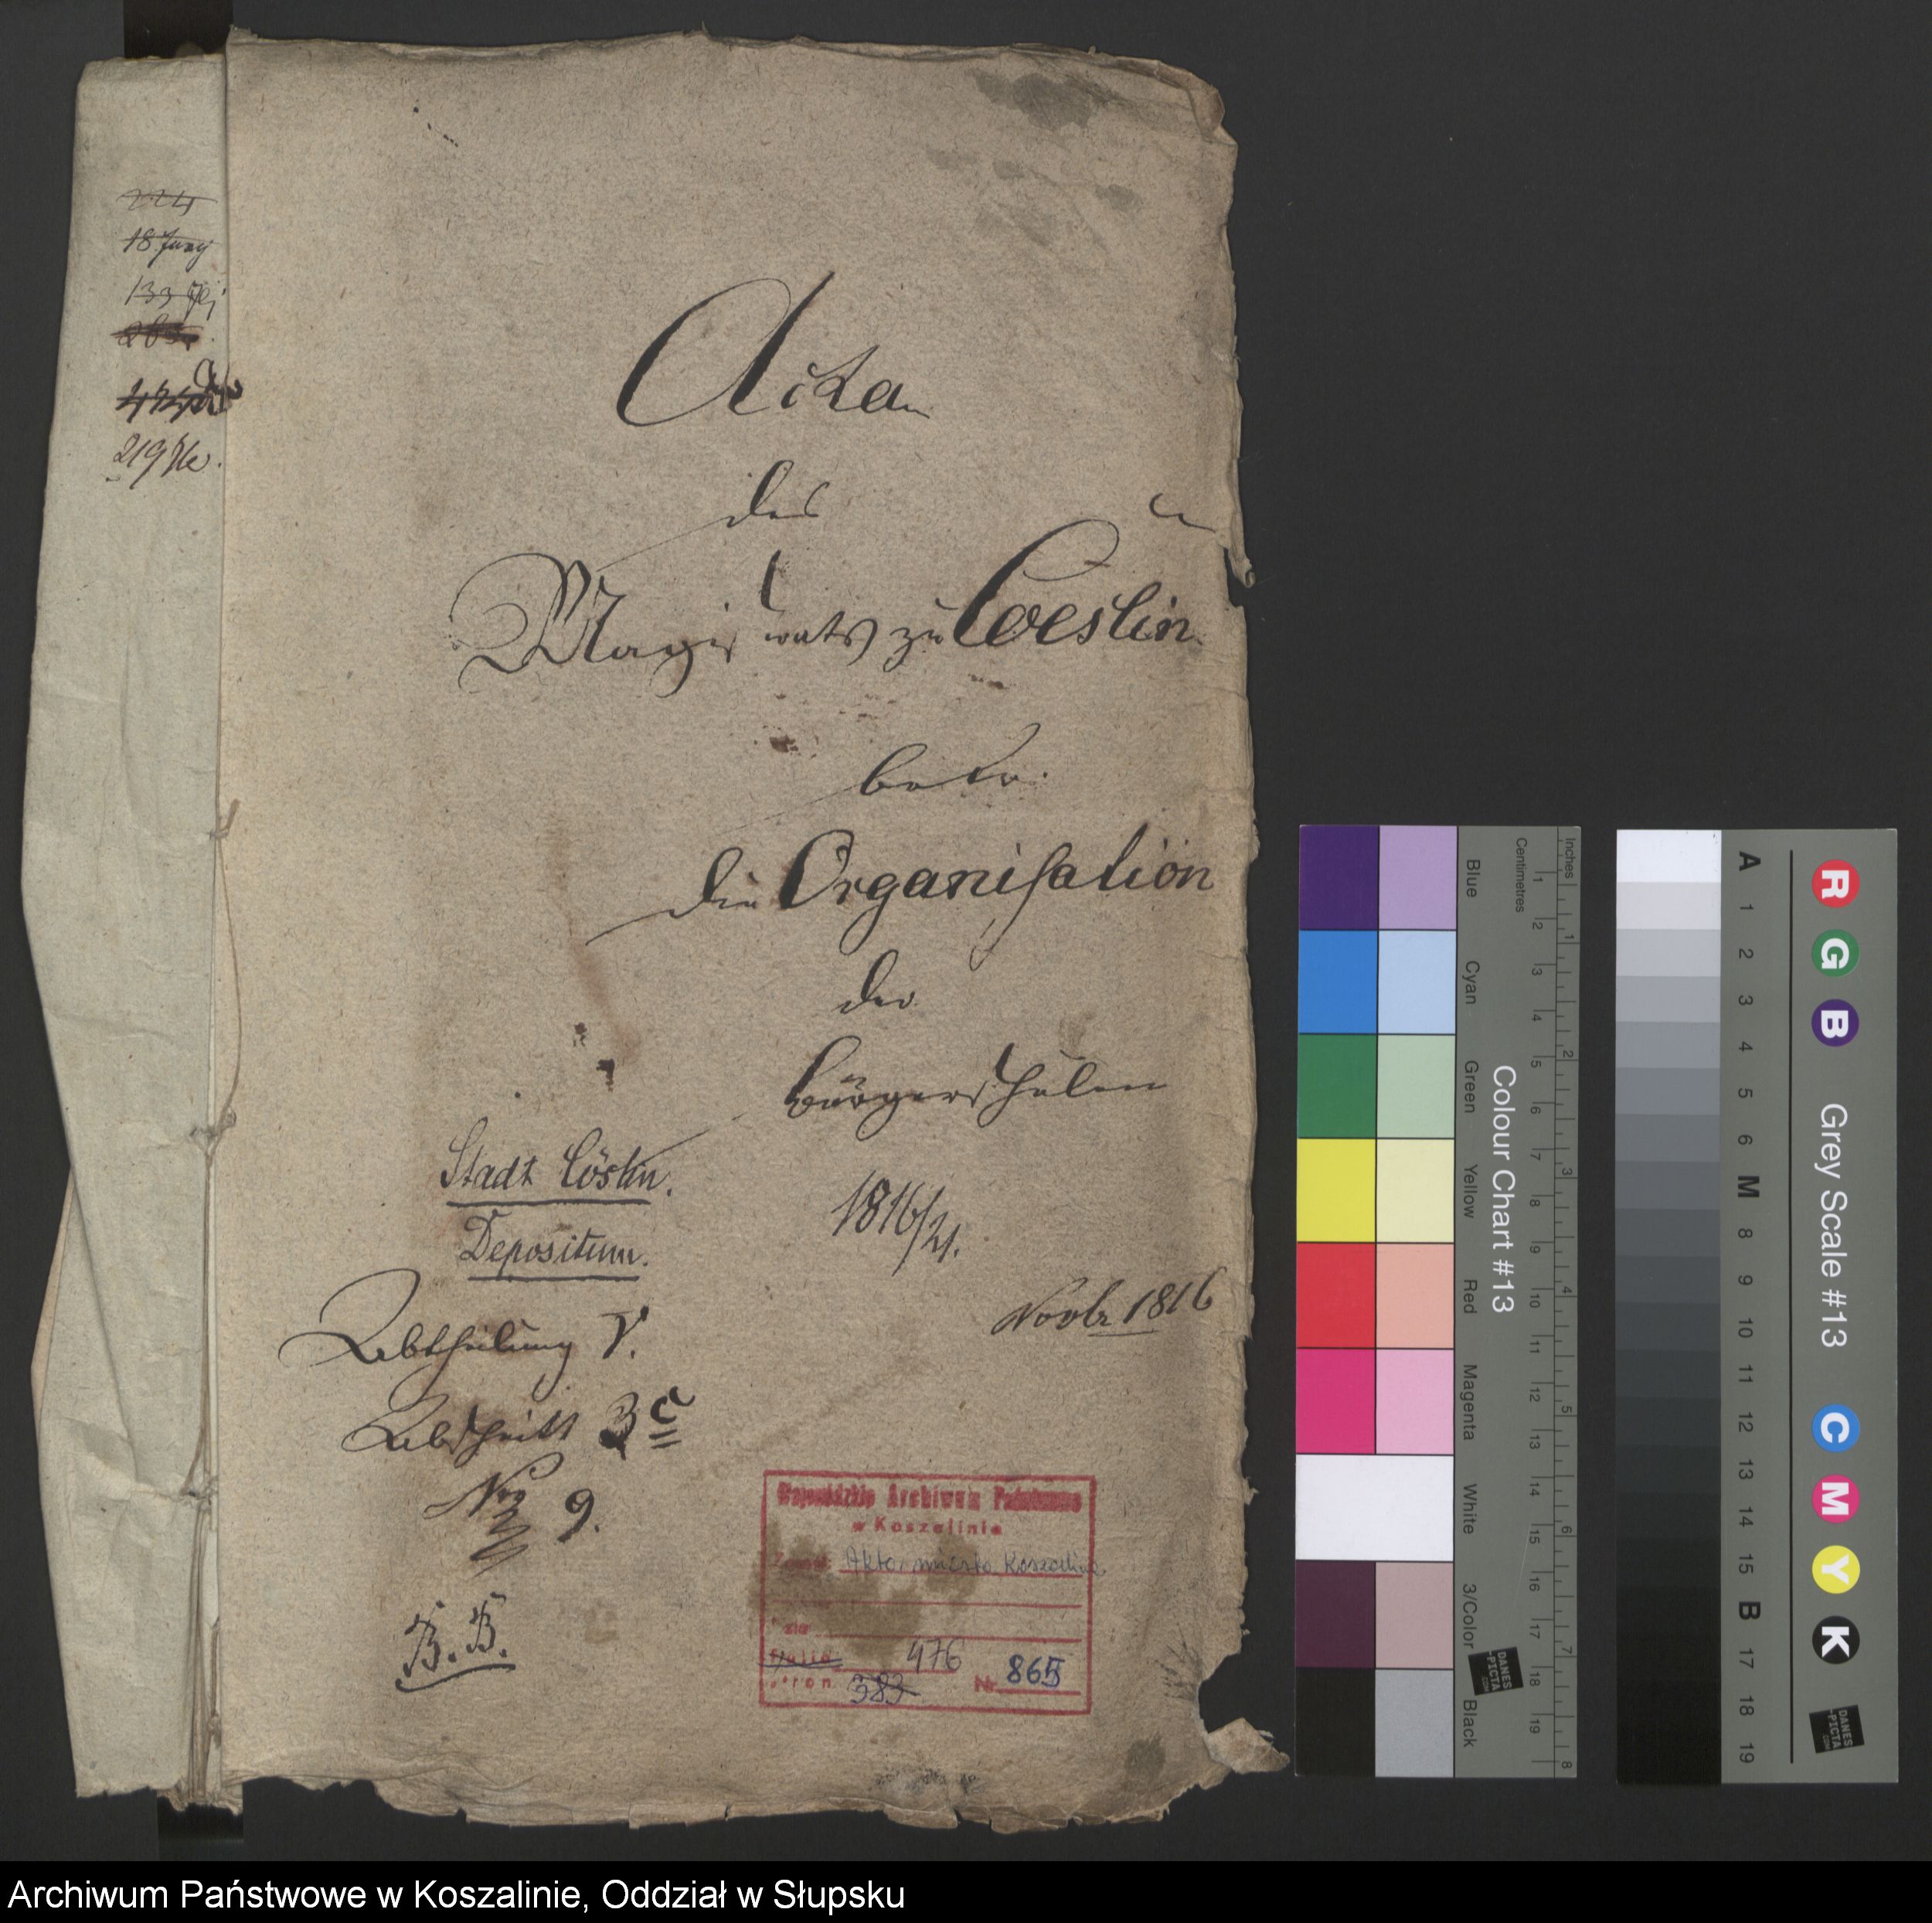 224
18 Juny
Acta
des
Magistrats zu Coeslin.
betr.
die Organisation
der
Bürgerschulen
Stadt Cöslin.
Depositum.
1816/21.
Novbr 1816
Abtheilung V.
Abschnitt 3 c
Nro 9.
B. B.
Wojewódzkie Archiwum Państwowe
w Koszalinie
Akta miasta Koszalina
476
stron 383 Nr 865
Inches
Centimetres
1 2 3 4 5 6 7 8
1 2 3 4 5 6 7 8 9 10 11 12 13 14 15 16 17 18 19
Blue Cyan Green Yellow Red Magenta White 3/Color Black
Colour Chart #13
DANES
-PICTA
.COM
A 1 2 3 4 5 6 M 8 9 10 11 12 13 14 15 B 17 18 19
R G B Grey Scale #13 C M Y K
DANES
-PICTA
.COM
Archiwum Państwowe w Koszalinie, Oddział w Słupsku